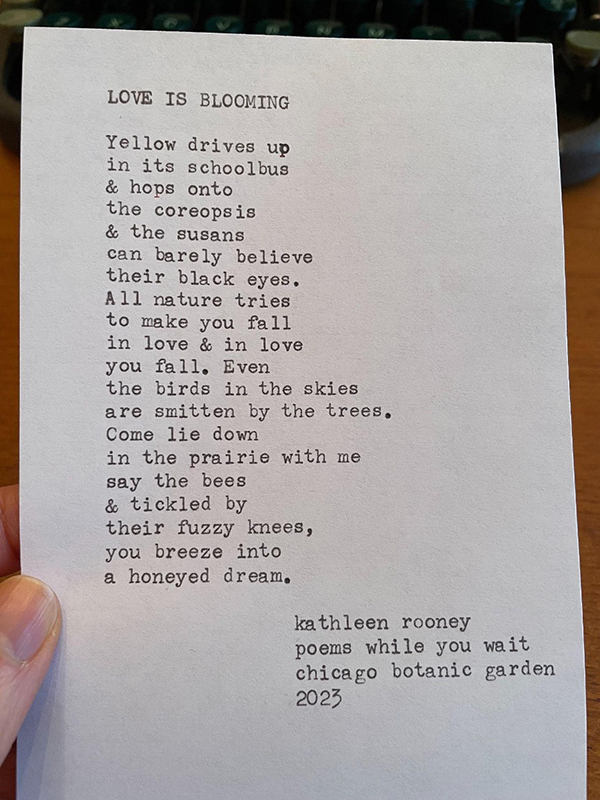 LOVE IS BLOOMING
Yellow drives up
in its schoolbus
& hops onto
the coreopsis
& the susans
can barely believe
their black eyes.
All nature tries
to make you fall
in love & in love
you fall. Even
the birds in the skies
are smitten by the trees.
Come lie down
in the prairie with me
say the bees
& tickled by
their fuzzy knees,
you breeze into
a honeyed dream.
kathleen rooney
poems while you wait
chicago botanic garden
2023